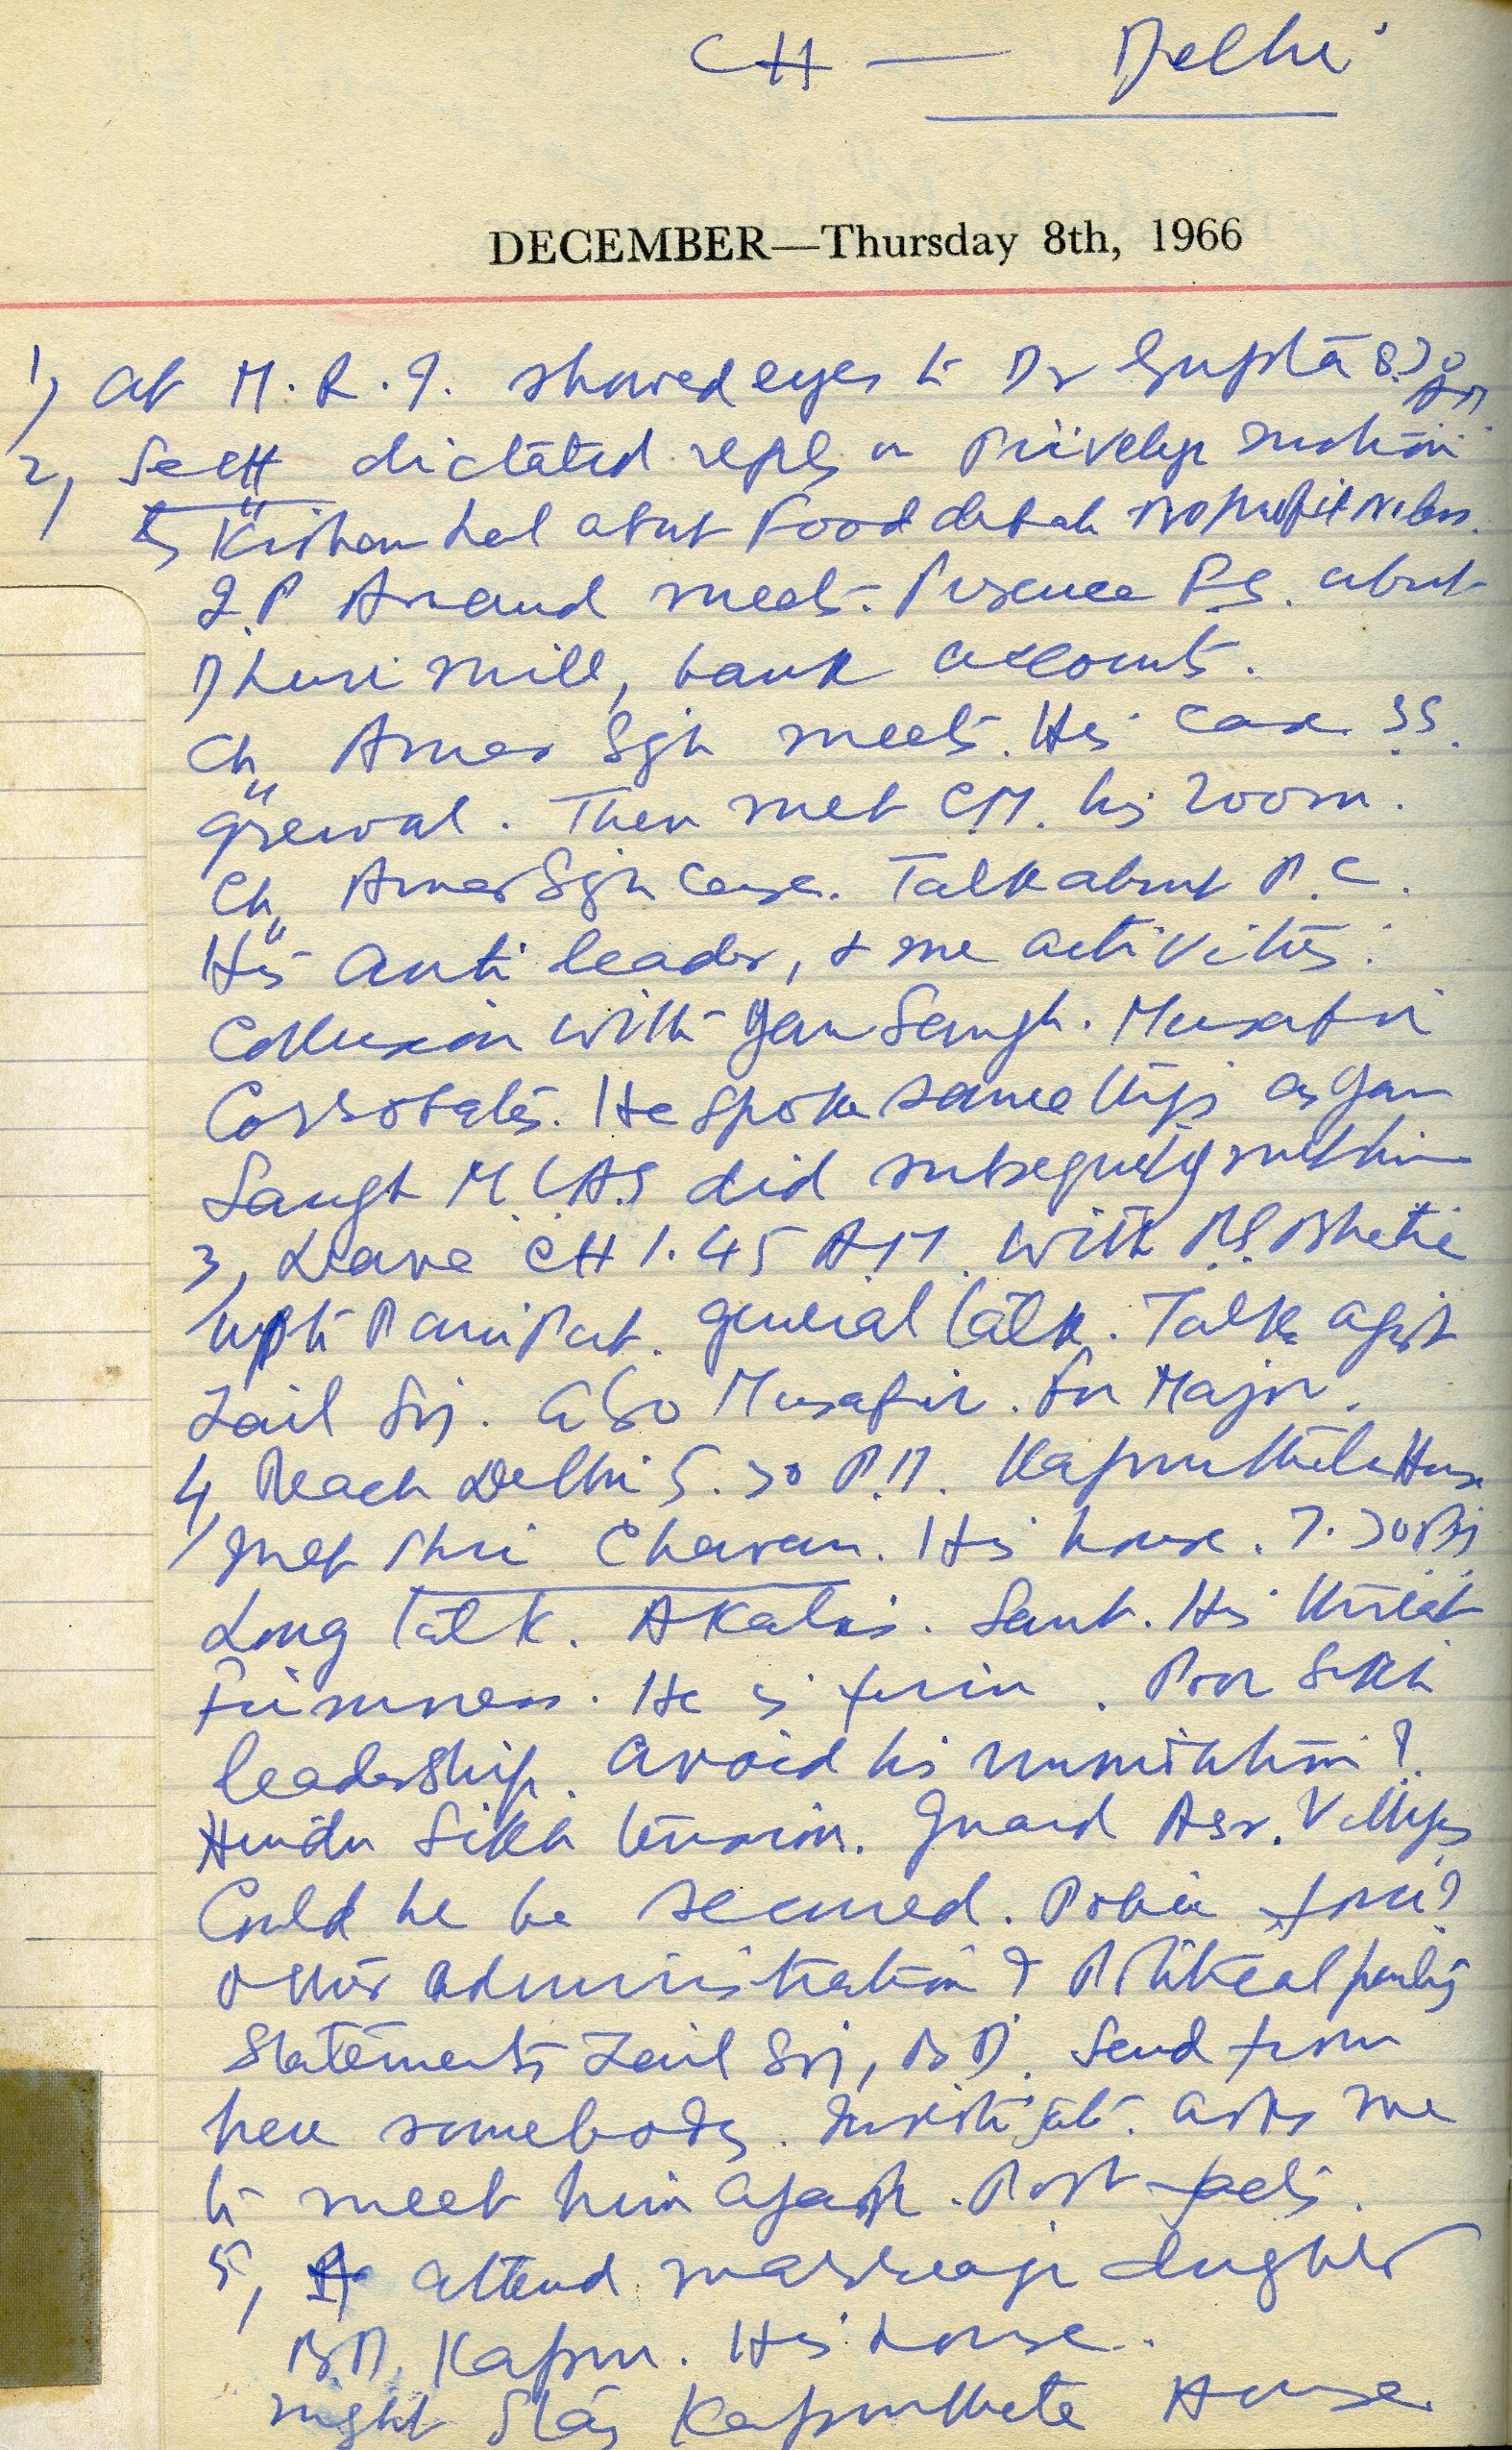 CH — Delhi
DECEMBER—Thursday 8th, 1966
1, At M. R. I. showed eyes to Dr Gupta 8.30 AM
2, Sectt dictated reply on Privelege motion
Kishan Lal about Food debate no profit no loss.
I.P Anand meets. Presence P.S. about
Dhuri mill, bank accounts.
Ch, Amar Sgh meets. His case S.S.
Grewal. Then met C.M. his room.
Ch, Amar Sgh Case. Talk about P. C.
His anti leader, & me activities.
Collusion with Jan Sangh. Musafir
Corrobates. He spoke same things as Jan
Sangh M.L.A.S did
3, Leave CH 1.45 AM with
upto PaniPat. general talk. Talks agst
Zail Sgh. also Musafir. for Major.
4, Reach Delhi 5.30 P.M. Kapurthala House
Met Shri Chavan. His house. 7.30 PM
Long talk. Akalis. Sant. His threat
Firmness. He is firm. Poor Sikh
leadership. avoid his immolation?
Hindu Sikh tension. Guard Asr. Villages
Could he be secured. Police force?
Other administration & Political parties
Statements Zail Sgh, B D. Send from
here somebody. Investigate. asks me
to meet him again. Post facts.
5, attend marriage daughter
B.D. Kapur. His house.
night Stay Kapurthala House.